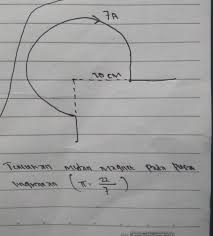 7A
20 cm
Tentukan medan magnet pada pusat
lingkaran (π = 22/7)